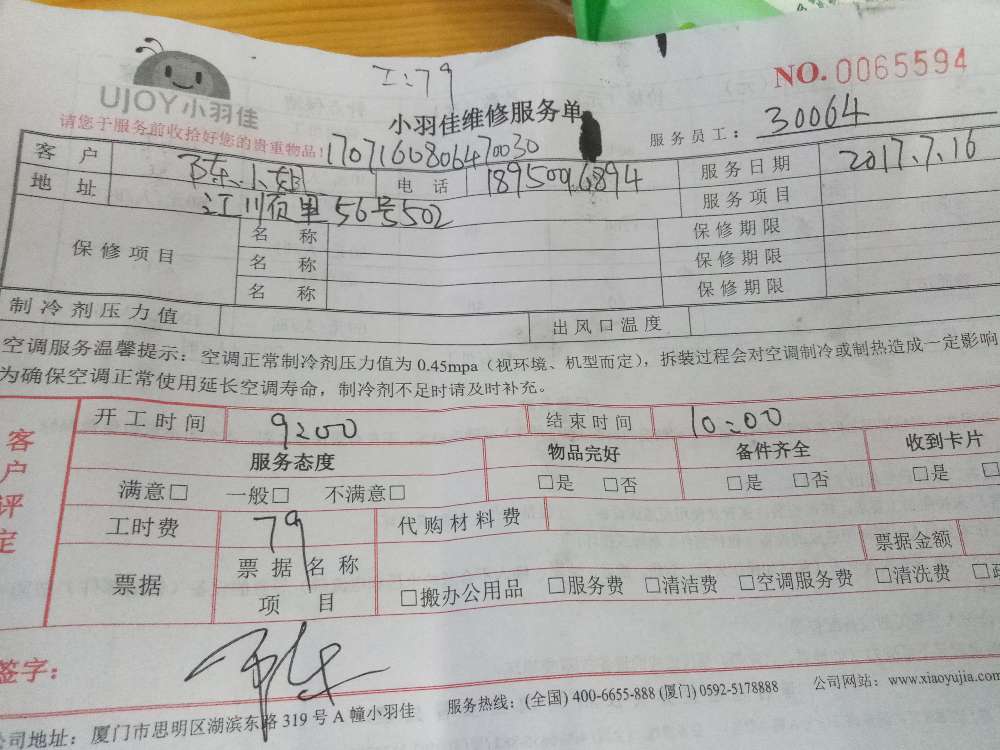 工:79
NO.0065594
UJOY小羽佳
小羽佳维修服务单
服务员工: 30064
请您于服务前收拾好您的贵重物品!
1707160806470030
客 户 陈小姐 电 话 服务日期 2017.7.16
地 址 江川 里56号502 服务项目
保修项目 名 称 保修期限
名 称 保修期限
名 称 保修期限
制冷剂压力值 出风口温度
空调服务温馨提示:空调正常制冷剂压力值为0.45mpa(视环境、机型而定),拆装过程会对空调制冷或制热造成一定影响
为确保空调正常使用延长空调寿命,制冷剂不足时请及时补充。
客户评定
开工时间 9:00 结束时间 10:00
服务态度 物品完好 备件齐全 收到卡片
满意□ 一般□ 不满意□ □是 □否 □是 □否 □是 □
工时费 79 代购材料费
票据 票据名称 票据金额
项 目 □搬办公用品 □服务费 □清洁费 □空调服务费 □清洗费
签字:
公司地址:厦门市思明区湖滨东路319号A幢小羽佳 服务热线:(全国) 400-6655-888 (厦门) 0592-5178888 公司网站:www.xiaoyujia.com